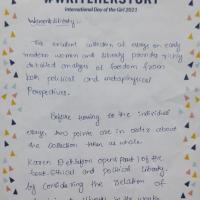 #WRITEHERSTORY
International Day of the Girl 2021
Women & Liberty :-
The excellent collection of essays on early
modern women and liberty provides richly
detailed analysis of freedom from
both political and metaphysical
Perspectives.
Before turning to the individual
essays, two points are in order about
the collection taken as whole.
Karen Detlefsen opens part 1 of the
text. Ethical and political liberty.
by considering the relation of
liberty in the works